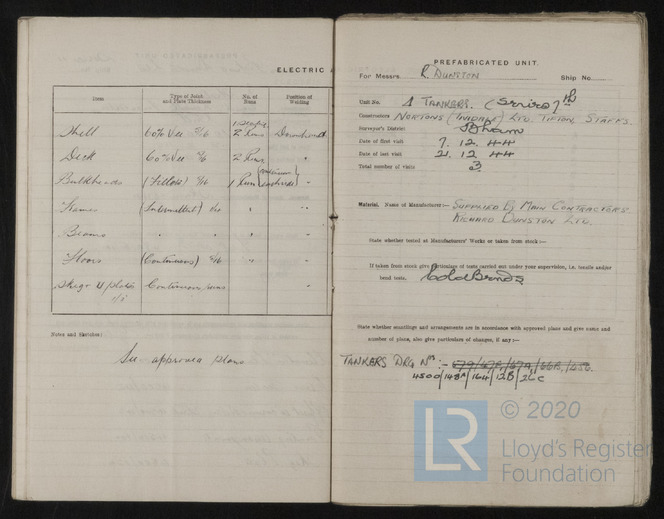 ELECTRIC
Item
Type of Joint and Plate Thickness
No. of Runs
Position of Welding
Shell 60% Vee 5/16 2 Runs Downhand
Deck 60% Vee 2 Runs "
Bulkheads (Fillets) 5/16 1 Run "
Frames (Intermittent) "
Beams " " "
Floors (Continuous) 5/16 " "
Continuous runs "
Notes and Sketches:
See approved plans
PREFABRICATED UNIT.
For Messrs R. DUNSTON Ship No.
Unit No. 1 TANKERS. (Series)
Constructors NORTONS (TIVIDALE) LTD. TIPTON, STAFFS.
Surveyor's District
Date of first visit 7. 12. 44
Date of last visit 21. 12. 44
Total number of visits 3.
Material. Name of Manufacturer:— SUPPLIED BY MAIN CONTRACTORS
RICHARD DUNSTON LTD.
State whether tested at Manufacturers' Works or taken from stock:—
If taken from stock give particulars of tests carried out under your supervision, i.e. tensile and/or
bend tests. Cold Bends
State whether scantlings and arrangements are in accordance with approved plans and give name and
number of plans, also give particulars of changes, if any:—
TANKERS DRG Nos:-
4500/148A/164/12B/26C
LR
© 2020
Lloyd's Register
Foundation